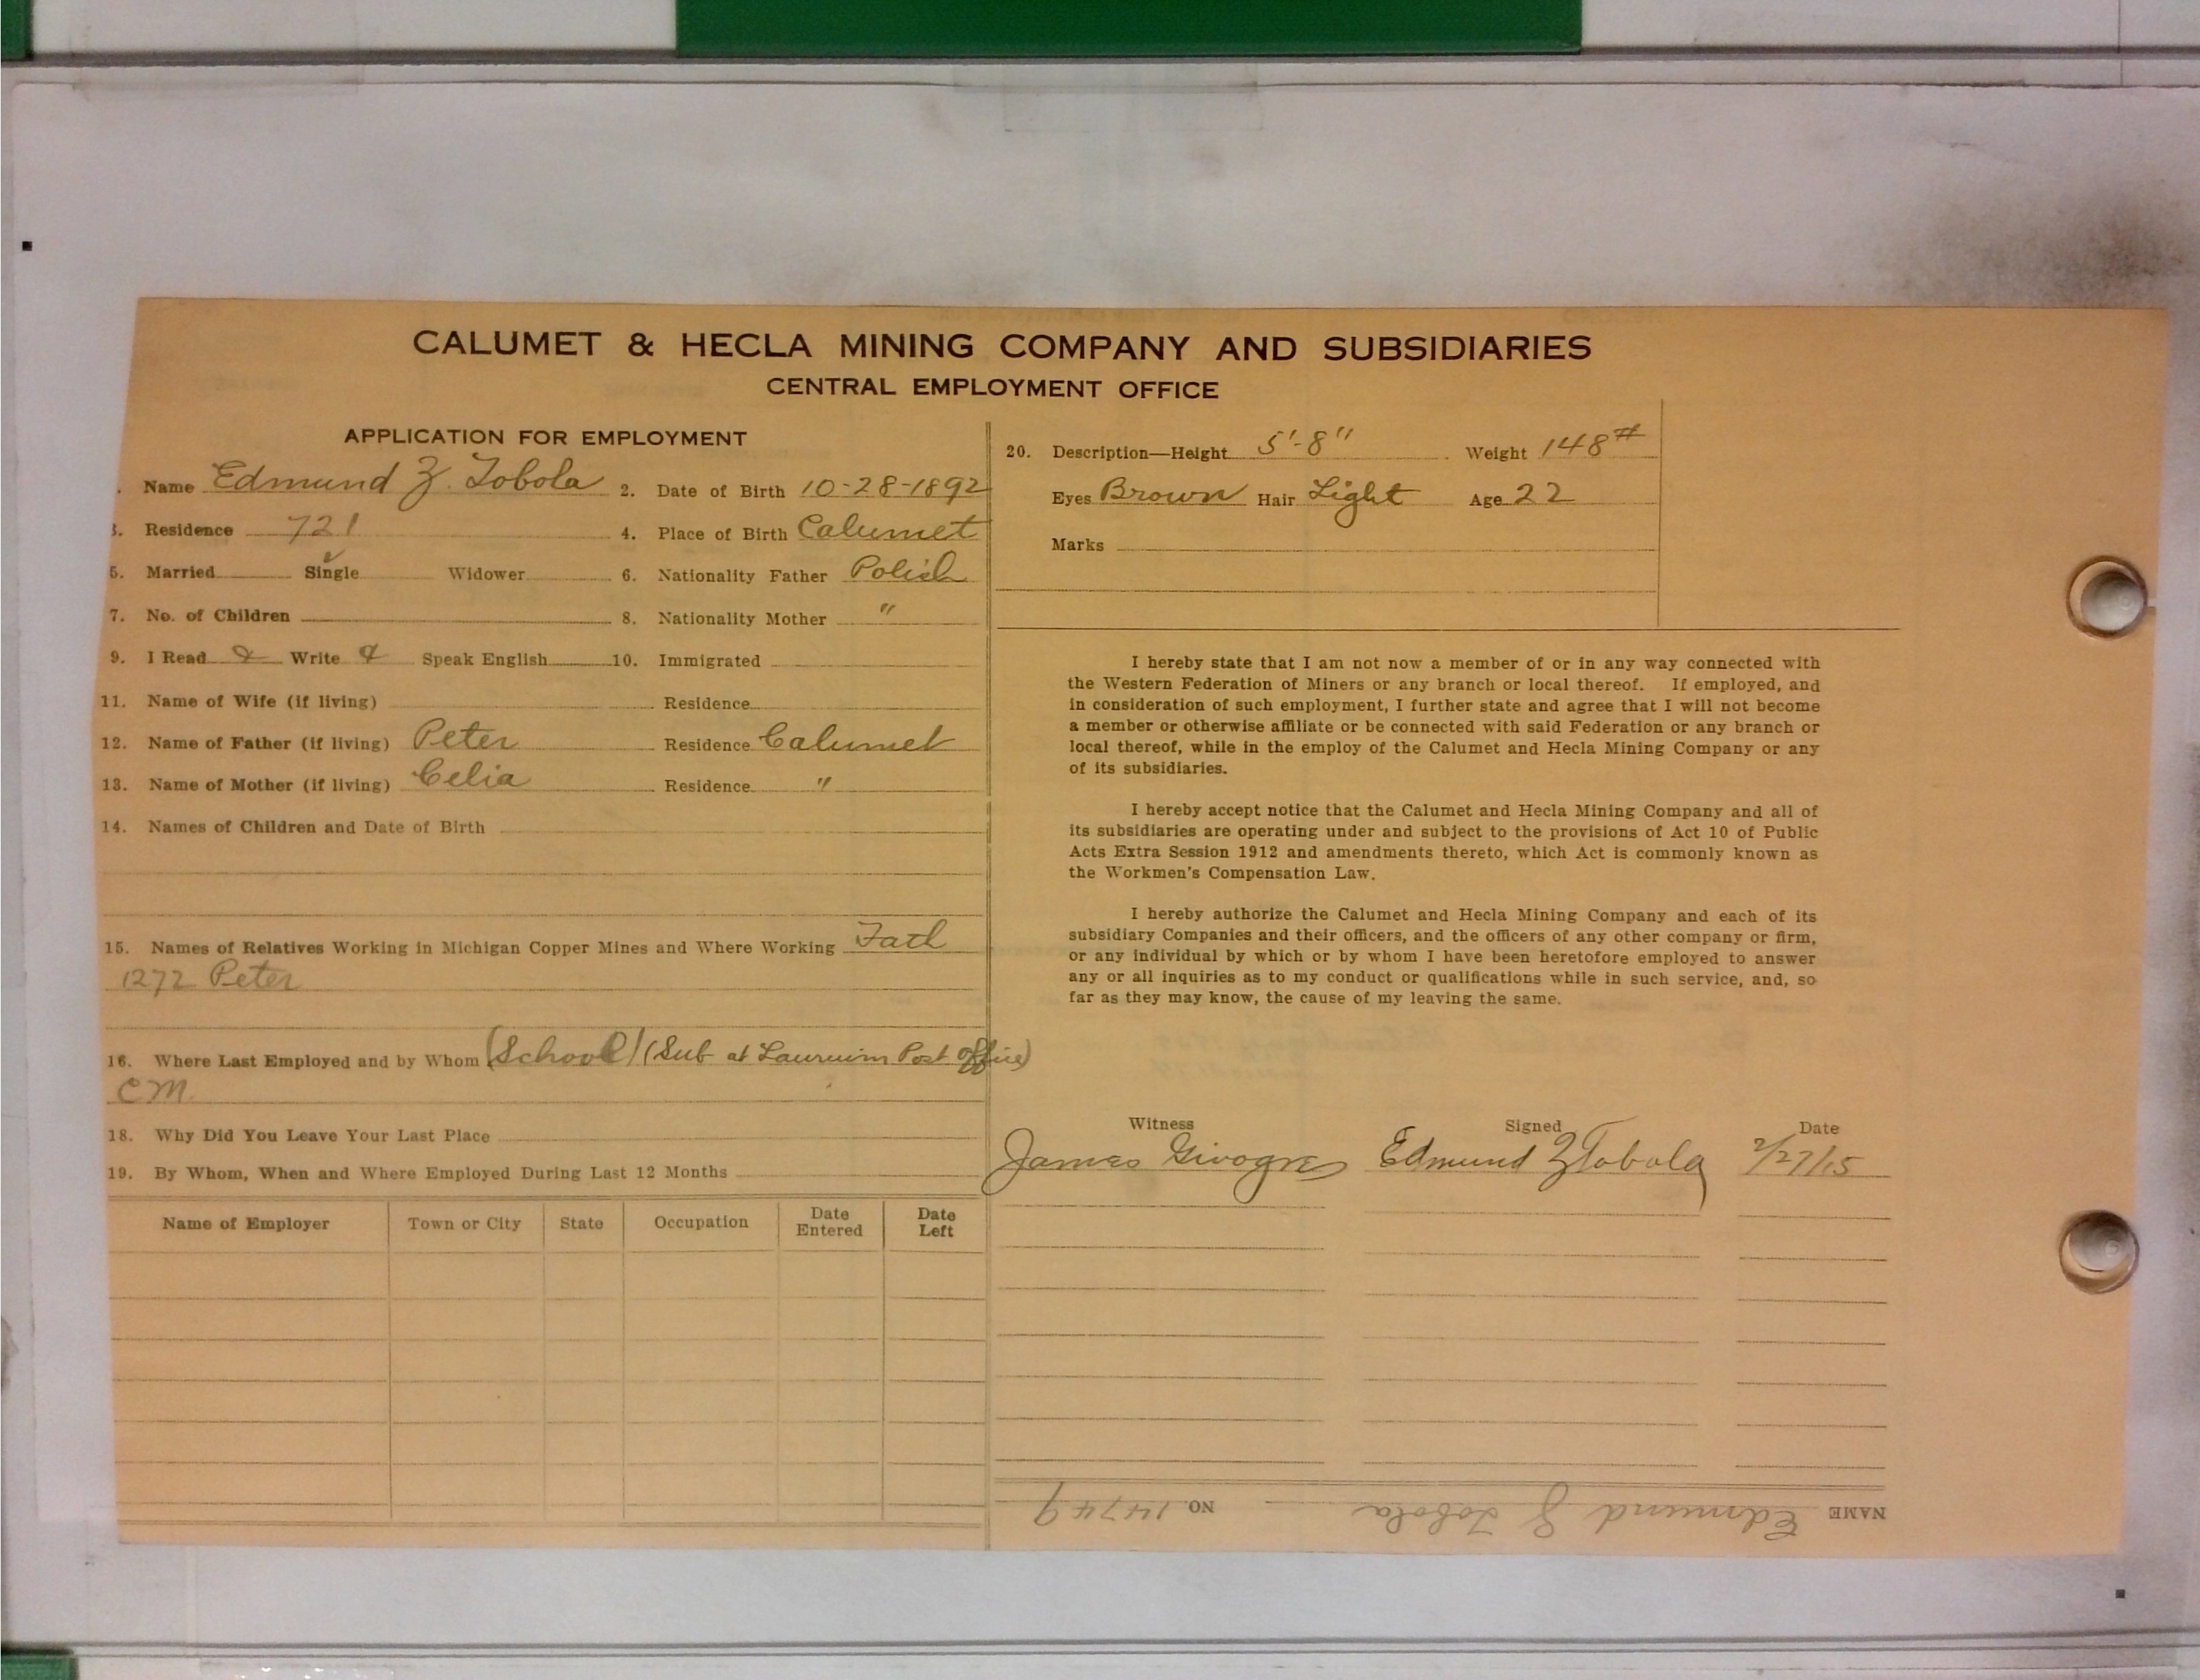 CALUMET & HECLA MINING COMPANY AND SUBSIDIARIES
CENTRAL EMPLOYMENT OFFICE
APPLICATION FOR EMPLOYMENT
. Name Edmund Z. Tobola 2. Date of Birth 10-28-1892
3. Residence 721 4. Place of Birth Calumet
5. Married Single ✓ Widower 6. Nationality Father Polish
7. No. of Children 8. Nationality Mother "
9. I Read & Write & Speak English 10. Immigrated
11. Name of Wife (if living) Residence
12. Name of Father (if living) Peter Residence Calumet
13. Name of Mother (if living) Celia Residence "
14. Names of Children and Date of Birth
15. Names of Relatives Working in Michigan Copper Mines and Where Working Fath
1272 Peter
16. Where Last Employed and by Whom (School) (Sub at Laurium Post Office)
C M.
18. Why Did You Leave Your Last Place
19. By Whom, When and Where Employed During Last 12 Months
Name of Employer Town or City State Occupation Date Entered Date Left
20. Description—Height 5'-8" Weight 148#
Eyes Brown Hair Light Age 22
Marks
I hereby state that I am not now a member of or in any way connected with
the Western Federation of Miners or any branch or local thereof. If employed, and
in consideration of such employment, I further state and agree that I will not become
a member or otherwise affiliate or be connected with said Federation or any branch or
local thereof, while in the employ of the Calumet and Hecla Mining Company or any
of its subsidiaries.
I hereby accept notice that the Calumet and Hecla Mining Company and all of
its subsidiaries are operating under and subject to the provisions of Act 10 of Public
Acts Extra Session 1912 and amendments thereto, which Act is commonly known as
the Workmen's Compensation Law.
I hereby authorize the Calumet and Hecla Mining Company and each of its
subsidiary Companies and their officers, and the officers of any other company or firm,
or any individual by which or by whom I have been heretofore employed to answer
any or all inquiries as to my conduct or qualifications while in such service, and, so
far as they may know, the cause of my leaving the same.
Witness Signed Date
James Edmund Z Tobola 2/27/15
NAME Edmund Z Tobola NO. 14749